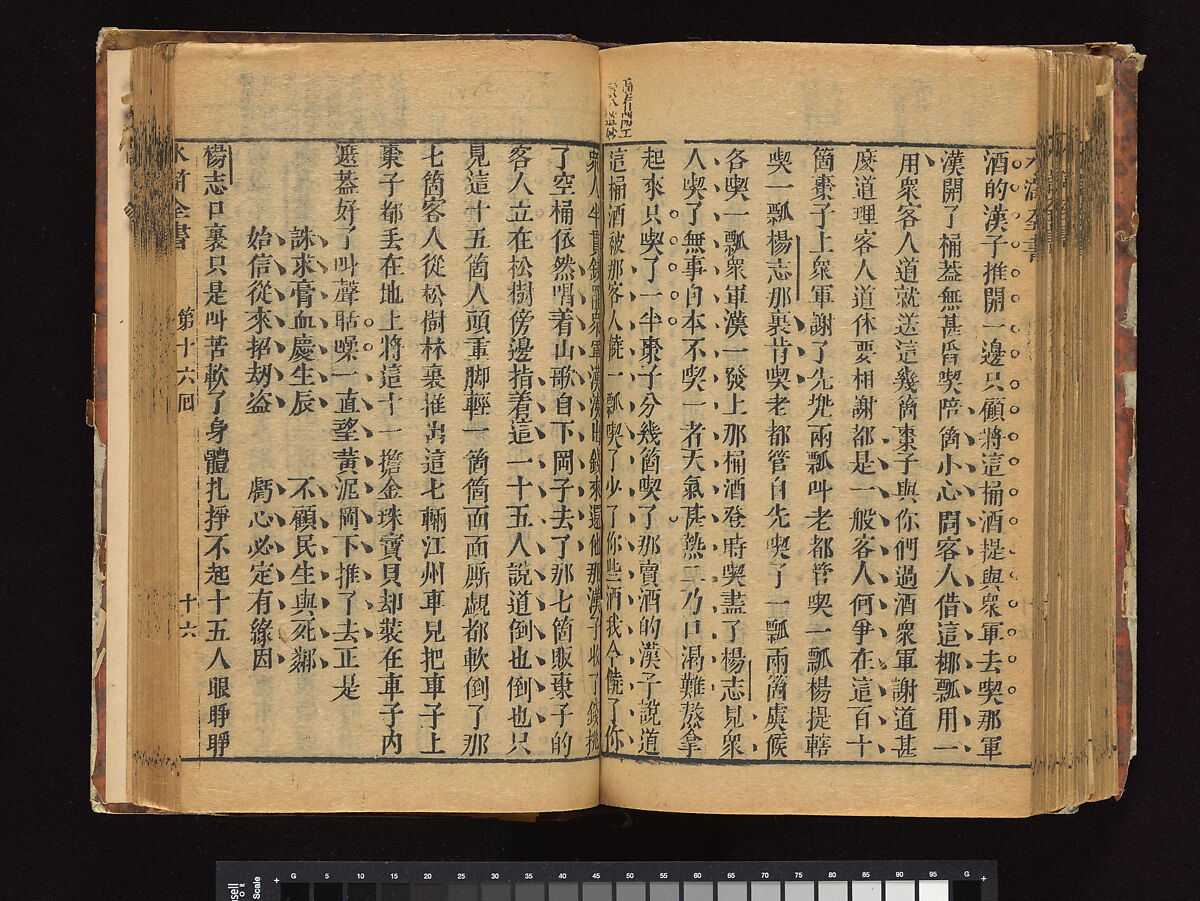 酒的漢子推開一邊只顧將這桶酒提與衆軍去喫那軍
漢開了桶葢無甚舀喫陪箇小心問客人借這椰瓢用一
用衆客人道就送這幾箇棗子與你們過酒衆軍謝道甚
麽道理客人道休要相謝都是一般客人何爭在這百十
箇棗子上衆軍謝了先兠兩瓢呌老都管喫一瓢楊提轄
喫一瓢楊志那裏肯喫老都管自先喫了一瓢兩箇虞候
各喫一瓢衆軍漢一發上那桶酒登時喫盡了楊志見衆
人喫了無事自本不喫一者天氣甚熱二乃口渴難熬拿
起來只喫了一半棗子分幾箇喫了那賣酒的漢子說道
這桶酒被那客人饒一瓢喫了少了你些酒我今饒了你
衆人半貫錢罷衆軍漢湊出錢來還他那漢子收了錢挑
了空桶依然唱着山歌自下岡子去了那七箇販棗子的
客人立在松樹傍邊指着這一十五人說道倒也倒也只
見這十五箇人頭重脚輕一箇箇面面厮覷都軟倒了那
七箇客人從松樹林裏推出這七輛江州車見把車子上
棗子都丢在地上將這十一擔金珠寶貝却裝在車子內
遮葢好了呌聲聒噪一直望黃泥岡下推了去正是
誅求膏血慶生辰 不顧民生與死鄰
始信從來招劫盜 虧心必定有緣因
楊志口裏只是呌苦軟了身體扎掙不起十五人眼睜睜
水滸全書 第十六回 十六
- G 5 10 15 20 30 35 40 45 50 55 60 65 70 75 80 85 90 95 G +
Scale